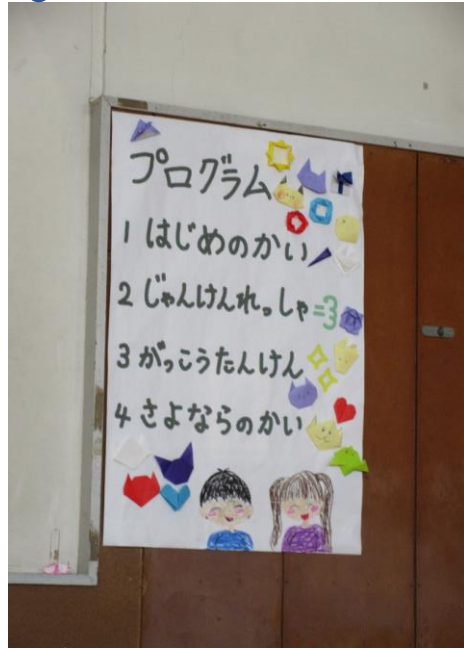 プログラム
1 はじめのかい
2 じゃんけんれっしゃ
3 がっこうたんけん
4 さよならのかい